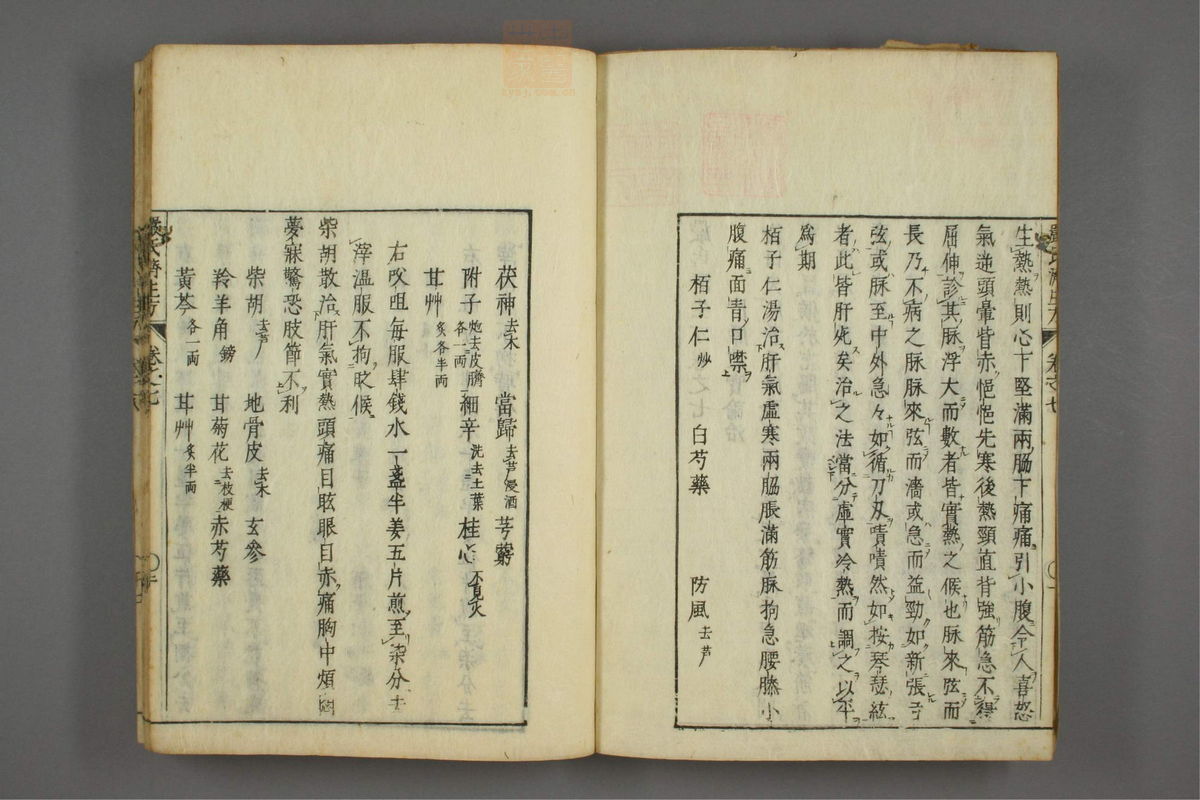 生熱熱則心下堅滿兩脇下痛痛引小腹令人喜怒
氣逆頭暈眥赤悒悒先寒後熱頸直背強筋急不得
屈伸診其脉浮大而數者皆實熱之候也脉來弦而
長乃不病之脉脉來弦而濇或急而益勁如新張弓
弦或脉至中外急々如循刀刄嘖嘖然如按琴瑟絃
者此皆肝死矣治之法當分虛實冷熱而調之以平
為期
栢子仁湯治肝氣虛寒兩脇脹滿筋脉拘急腰膝小
腹痛面青口噤
栢子仁炒 白芍藥 防風去芦
茯神去木 當歸去芦浸酒 芎藭
附子炮去皮臍各一兩 細辛洗去土葉 桂心不見火
甘艸炙各半兩
右㕮咀每服肆錢水一盞半姜五片煎至柒分去
滓溫服不拘時候
柴胡散治肝氣實熱頭痛目眩眼目赤痛胸中煩悶
夢寐驚恐肢節不利
柴胡去芦 地骨皮去木 玄參
羚羊角鎊 甘菊花去枝梗 赤芍藥
黃芩各一兩 甘艸炙半兩
卷之七